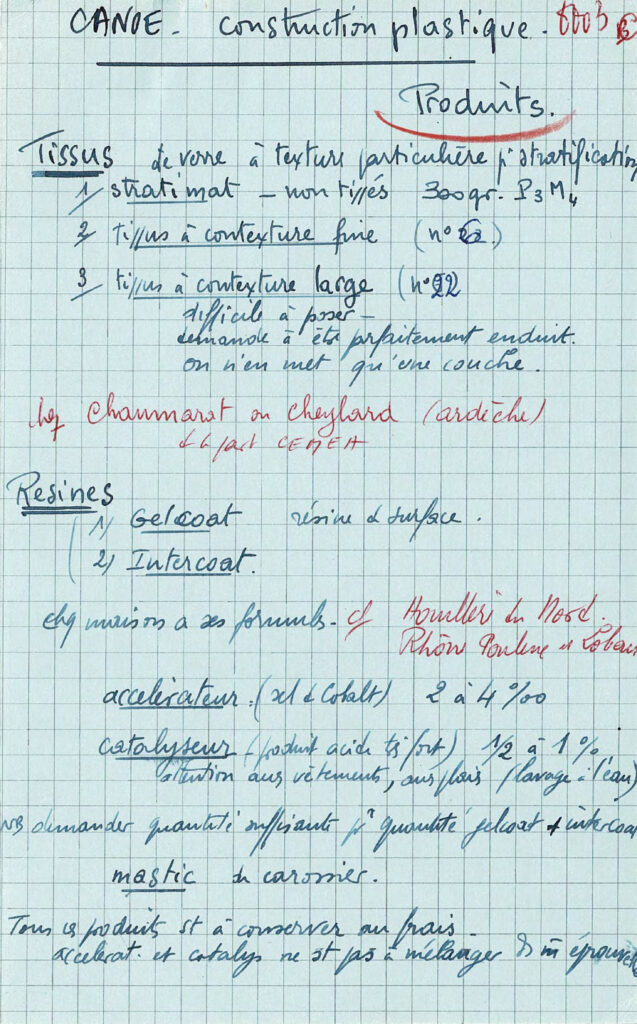 CANOE - construction plastique. 8003
Produits.
Tissus de verre à texture particulière pr stratification
1/ stratimat - non tissés 300gr. P3M4
2/ tissus à contexture fine (n° )
3/ tissus à contexture large (n° 22
difficile à poser -
demande à être parfaitement enduit.
on n'en met qu'une couche.
chez Chaumarat ou Cheylard (ardèche)
de la part CEMEA
Resines
1) Gelcoat résine de surface.
2) Intercoat.
chq maison a ses formules - cf Houllere du Nord
Rhône Poulenc et
accelérateur. (sel de Cobalt) 2 à 4 %00
catalyseur (produit acide très fort) 1/2 à 1 %
attention aux vêtements, aux plaies (lavage à l'eau)
NB demander quantité suffisante pr quantité gelcoat + intercoat
mastic de carossier.
Tous ces produits st à conserver au frais -
accelerat. et catalys ne st pas à mélanger ds m̄ éprouvette